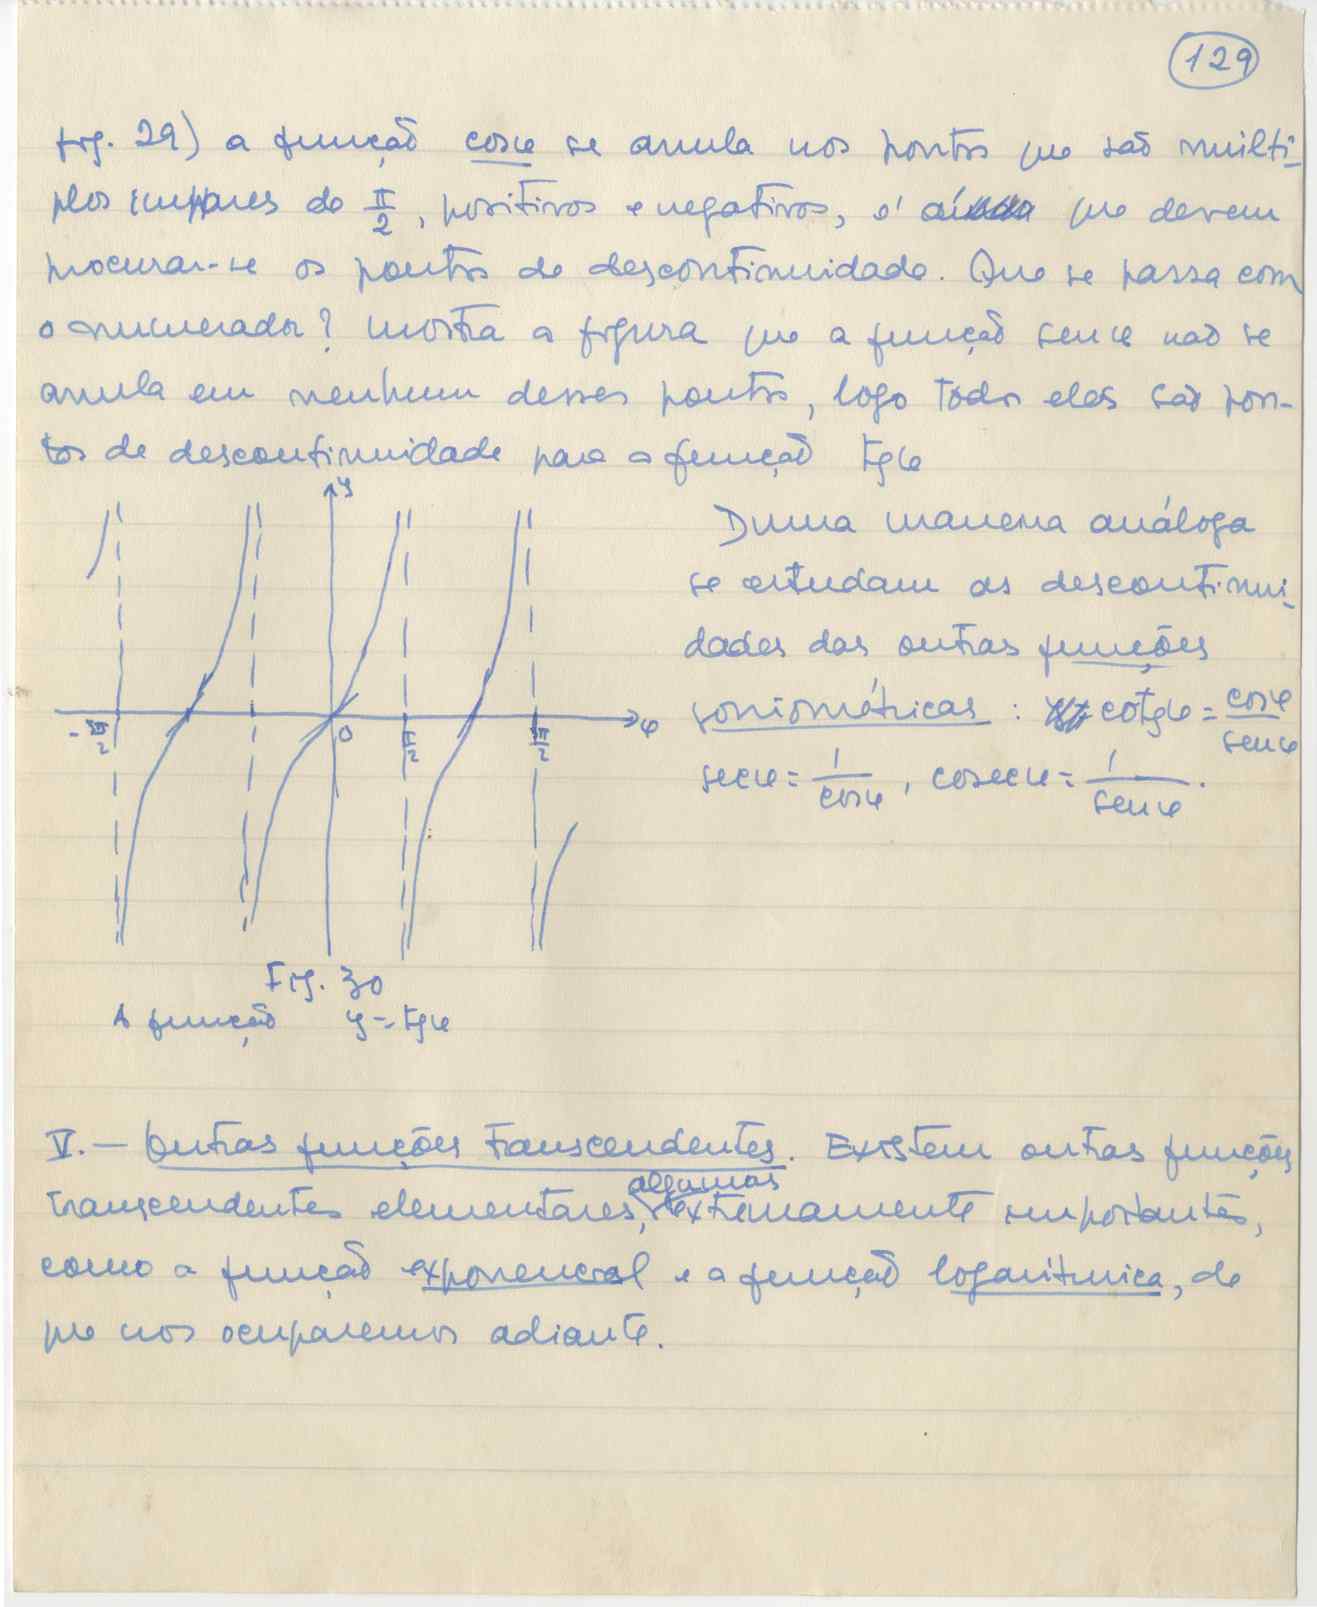 129
fig. 29) a função cosφ se anula nos pontos que são múlti-
plos ímpares de π/2, positivos e negativos, é aí que devem
procurar-se os pontos de descontinuidade. Que se passa com
o numerador? mostra a figura que a função senφ não se
anula em nenhum desses pontos, logo todos eles são pon-
tos de descontinuidade para a função tgφ
y
Duma maneira análoga
se estudam as descontinui-
dades das outras funções
goniométricas : cotgφ = cosφ/senφ
secφ = 1/cosφ , cosecφ = 1/senφ .
-3π/2 0 π/2 3π/2 φ
Fig. 30
A função y = tgφ
V. — Outras funções transcendentes. Existem outras funções
algumas
transcendentes elementares, extremamente importantes,
como a função exponencial e a função logarítmica, de
que nos ocuparemos adiante.